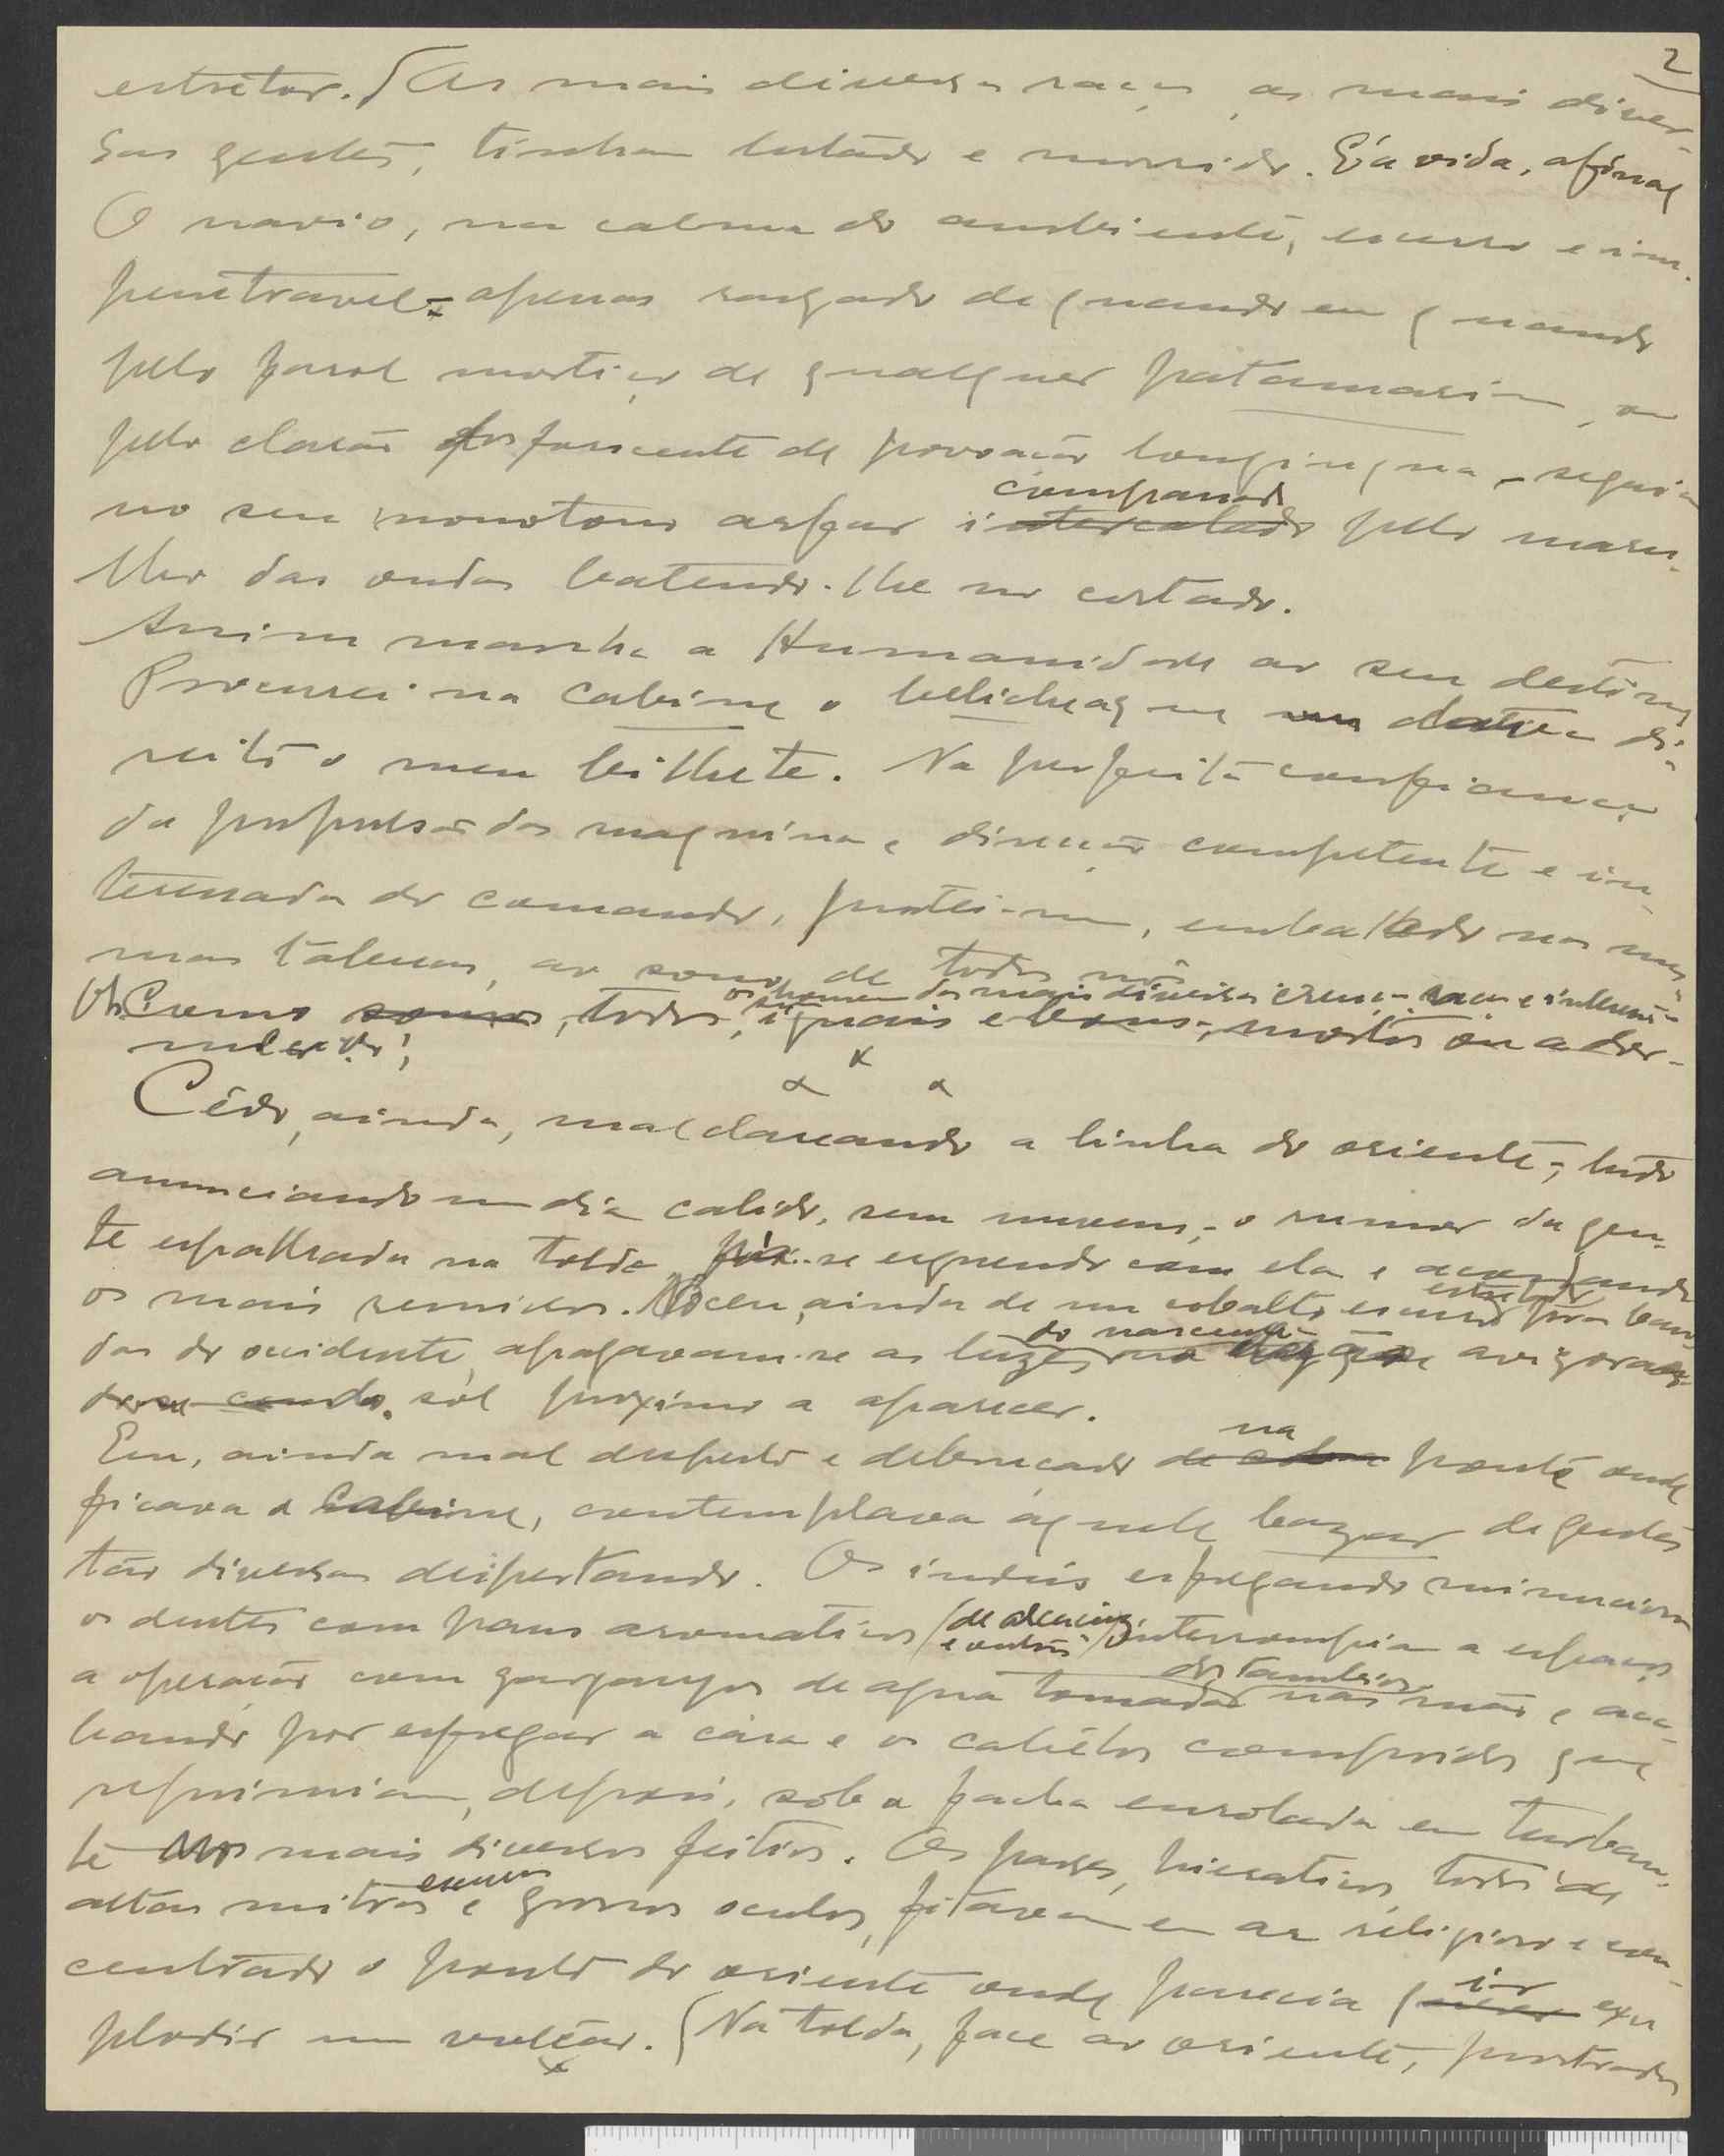 2
estretor. As mais diversas raças, as mais diver-
sas gentes, tinham lutado e morrido. É a vida, afinal
O navio, na calma do ambiente, escuro e im-
penetravel - apenas rasgado de quando em quando
pelo farol mortiço de qualquer patamarim, ou
pelo clarão fosforicente de povoação longinqua - seguia
compassado
no seu monotono arfar intercalado pelo maru-
lho das ondas batendo-lhe no costado.
Assim marcha a Humanidade ao seu destino
Procurei na cabine o beliche a que me dava di-
reito o meu bilhete. Na perfeita confiança
da propulsão das maquinas e direcção competente e in-
teressada do comando, prostei-me, embalado nas mes-
mas tabuas, ao sono de todos nós
os homens das mais diversas crenças, raças e
Oh! Como somos, todos, iguais e bons, mortos ou ador-
mecidos!
x x x
Cêdo, ainda, mal clareando a linha do oriente, tudo
anunciando um dia calido, sem nuvens, - o rumor da gen-
te espalhada na tolda pôz-se erguendo com ela e acordando
os mais remissos. No ceu, ainda de um cobalto escuro para as ban-
das do ocidente apagavam-se as luzes
do nascente
do sól proximo a aparecer.
na
Eu, ainda mal desperto e debruçado ponte onde
ficava a cabine, contemplava aquele bazar de gentes
tão diversas despertando. Os indús esfregando
os dentes com paus aromaticos (de alcaçuz
e outros) interrompiam a espaços
a operação com gargarejos de agua tomada nas mãos e aca-
bando por esfregar a cara e os cabêlos compridos que
reprimiam, depois, sob a facha enrolada em turban-
te nos mais diversos feitios. Os parses, hieraticos, todos de
escuros
altas mitras e grossos oculos, fitavam em ar religioso e con-
centrado o ponto do oriente onde parecia ir ex-
plodir um vulcão. Na tolda, face ao oriente, prostrados